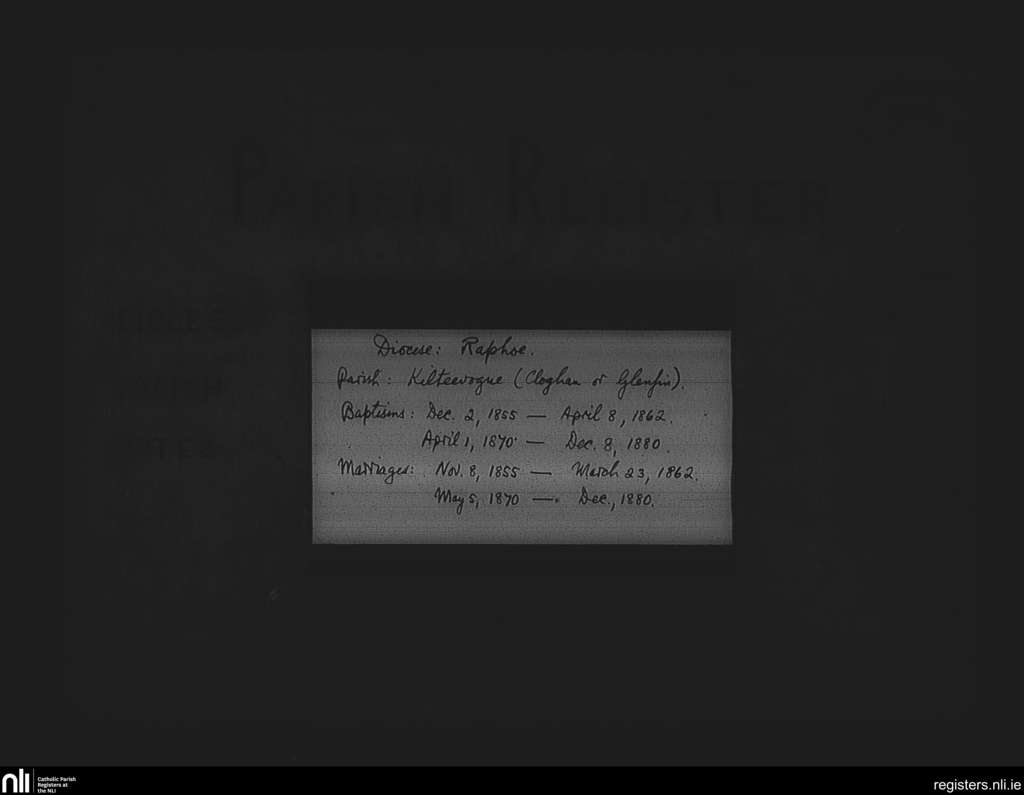 PARISH REGISTER
Diocese: Raphoe.
Parish: Kilteevogue (Cloghan or Glenfin).
Baptisms: Dec. 2, 1855 — April 8, 1862.
April 1, 1870 — Dec. 8, 1880.
Marriages: Nov. 8, 1855 — March 23, 1862.
May 5, 1870 — Dec., 1880.
nli
Catholic Parish
Registers at
the NLI
registers.nli.ie